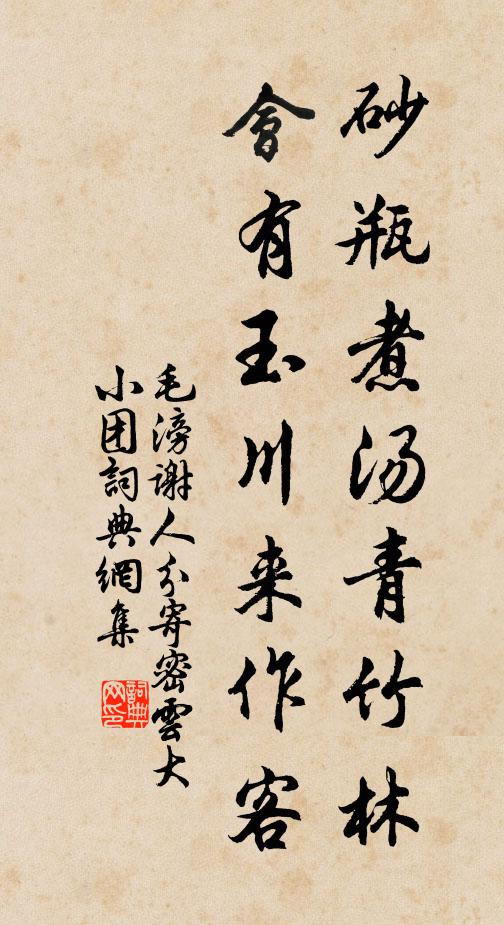 砂瓶煮汤青竹林
會有玉川来作客
毛滂谢人分寄密雲大
小团詞典網集
詞典网印